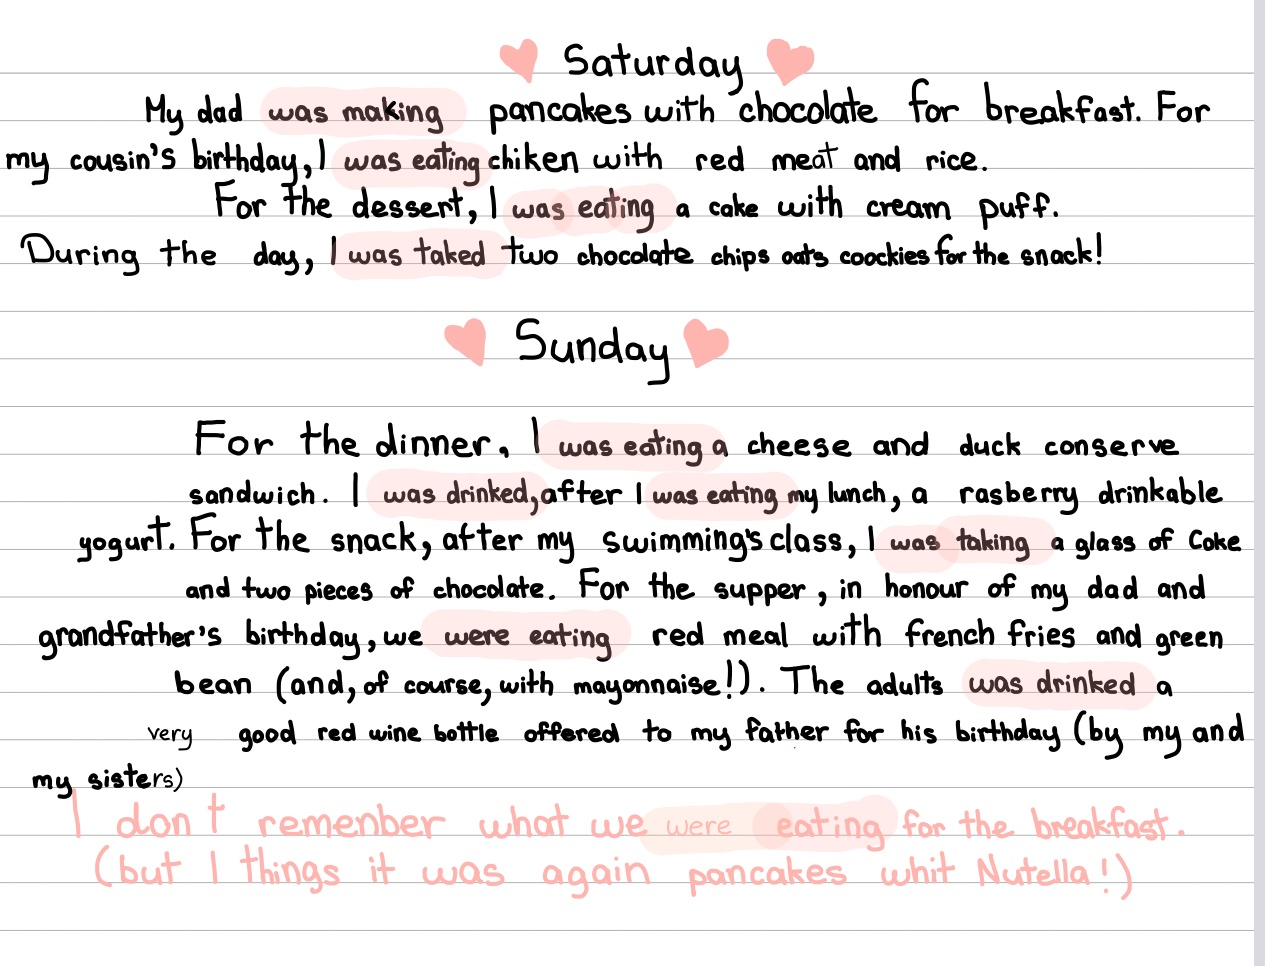 Saturday
My dad was making pancakes with chocolate for breakfast. For
my cousin's birthday, I was eating chiken with red meat and rice.
For the dessert, I was eating a cake with cream puff.
During the day, I was taked two chocolate chips oats coockies for the snack!
Sunday
For the dinner, I was eating a cheese and duck conserve
sandwich. I was drinked, after I was eating my lunch, a rasberry drinkable
yogurt. For the snack, after my swimming's class, I was taking a glass of Coke
and two pieces of chocolate. For the supper, in honour of my dad and
grandfather's birthday, we were eating red meal with french fries and green
bean (and, of course, with mayonnaise!). The adults was drinked a
very good red wine bottle offered to my father for his birthday (by my and
my sisters)
I don't remenber what we were eating for the breakfast.
(but I things it was again pancakes whit Nutella!)